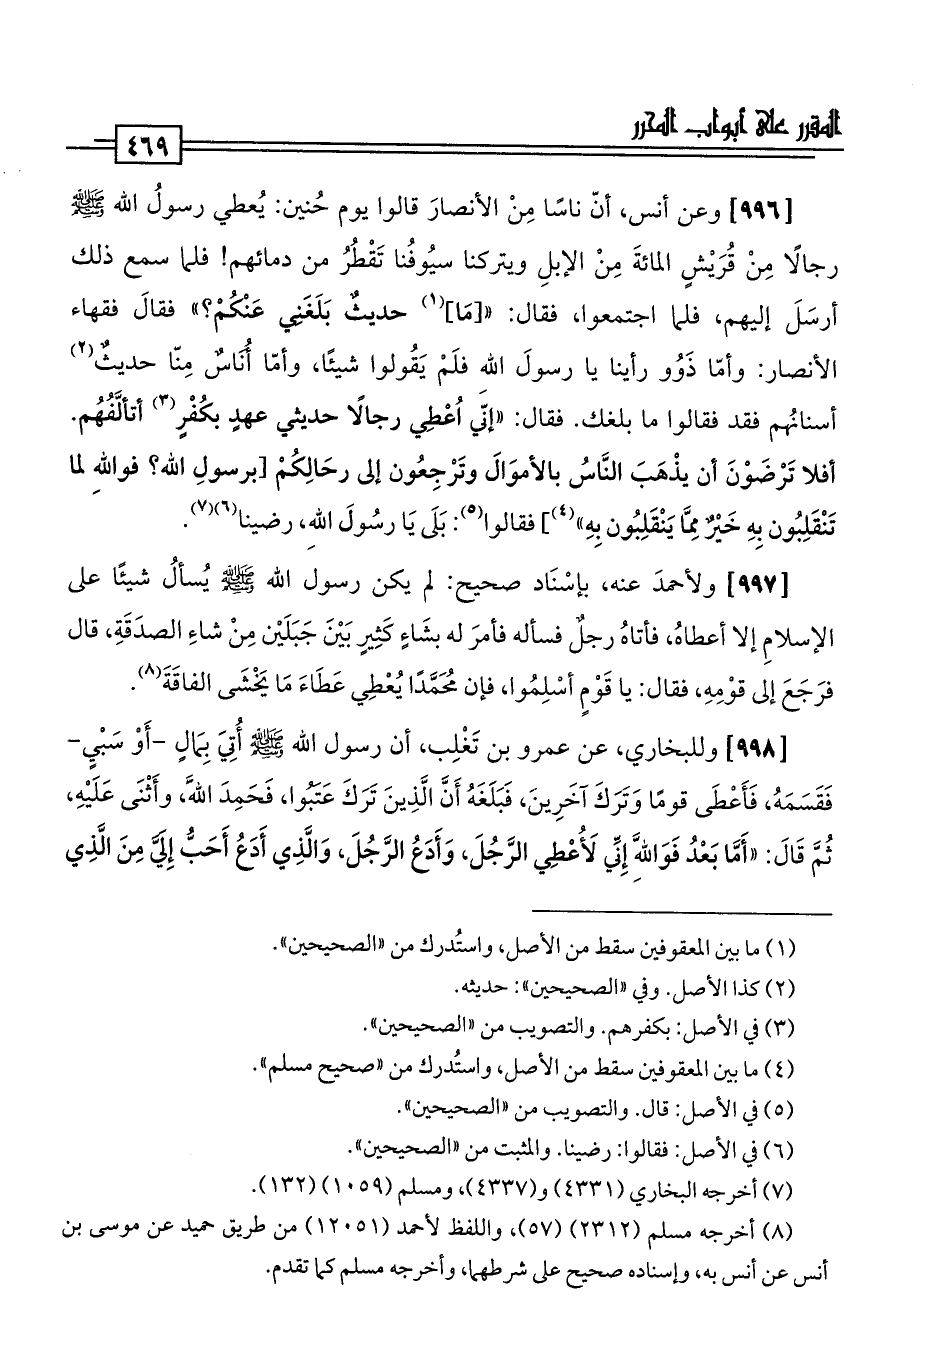 المقرر على أبواب المحرر
٤٦٩
[٩٩٦] وعن أنس، أنّ ناسًا مِنْ الأنصارَ قالوا يوم حُنين: يُعطي رسولُ الله ﷺ
رجالًا مِنْ قُرَيْشٍ المائةَ مِنْ الإبلِ ويتركنا سيُوفُنا تَقْطُرُ من دمائهم! فلما سمع ذلك
أرسَلَ إليهم، فلما اجتمعوا، فقال: «[مَا](١) حديثٌ بَلَغَنِي عَنْكُمْ؟» فقالَ فقهاء
الأنصار: وأمّا ذَوُو رأينا يا رسول الله فلَمْ يَقُولوا شيئًا، وأمّا أُنَاسٌ مِنّا حديثٌ(٢)
أسنانُهم فقد فقالوا ما بلغك. فقال: «إنِّي أُعْطِي رجالًا حديثي عهدٍ بكُفْرٍ(٣) أتألَّفُهُم.
أفلا تَرْضَوْنَ أن يذْهَبَ النَّاسُ بالأموَالَ وتَرْجِعُون إلى رحَالِكُمْ [برسولِ الله؟ فوالله لما
تَنْقَلِبُون بِهِ خَيْرٌ مِمَّا يَنْقَلِبُون بِهِ»(٤)] فقالوا(٥): بَلَى يَا رسُولَ اللهِ، رضينا(٦)(٧).
[٩٩٧] ولأحمدَ عنه، بإسْنَاد صحيح: لم يكن رسول الله ﷺ يُسألُ شيئًا على
الإسلامِ إلا أعطاهُ، فأتاهُ رجلٌ فسأله فأمرَ له بشَاءٍ كَثِيرٍ بَيْنَ جَبَلَيْن مِنْ شاءِ الصدَقَةِ، قال
فرَجَعَ إلى قومِهِ، فقال: يا قَوْمِ أسْلِمُوا، فإن مُحَمَّدًا يُعْطِي عَطَاءَ مَا يَخْشَى الفاقَةَ(٨).
[٩٩٨] وللبخاري، عن عمرو بن تَغْلِب، أن رسول الله ﷺ أُتِيَ بِمَالٍ -أَوْ سَبْيٍ-
فَقَسَمَهُ، فَأَعْطَى قومًا وَتَرَكَ آخَرِينَ، فَبَلَغَهُ أَنَّ الَّذِينَ تَرَكَ عَتَبُوا، فَحَمِدَ اللهَ، وأَثْنَى عَلَيْهِ،
ثُمَّ قَالَ: «أَمَّا بَعْدُ فَوَاللهِ إِنِّي لَأُعْطِي الرَّجُلَ، وَأَدَعُ الرَّجُلَ، وَالَّذِي أَدَعُ أَحَبُّ إِلَيَّ مِنَ الَّذِي
(١) ما بين المعقوفين سقط من الأصل، واستُدرك من «الصحيحين».
(٢) كذا الأصل. وفي «الصحيحين»: حديثه.
(٣) في الأصل: بكفرهم. والتصويب من «الصحيحين».
(٤) ما بين المعقوفين سقط من الأصل، واستُدرك من «صحيح مسلم».
(٥) في الأصل: قال. والتصويب من «الصحيحين».
(٦) في الأصل: فقالوا: رضينا. والمثبت من «الصحيحين».
(٧) أخرجه البخاري (٤٣٣١) و(٤٣٣٧)، ومسلم (١٠٥٩) (١٣٢).
(٨) أخرجه مسلم (٢٣١٢) (٥٧)، واللفظ لأحمد (١٢٠٥١) من طريق حميد عن موسى بن
أنس عن أنس به، وإسناده صحيح على شرطهما، وأخرجه مسلم كما تقدم.